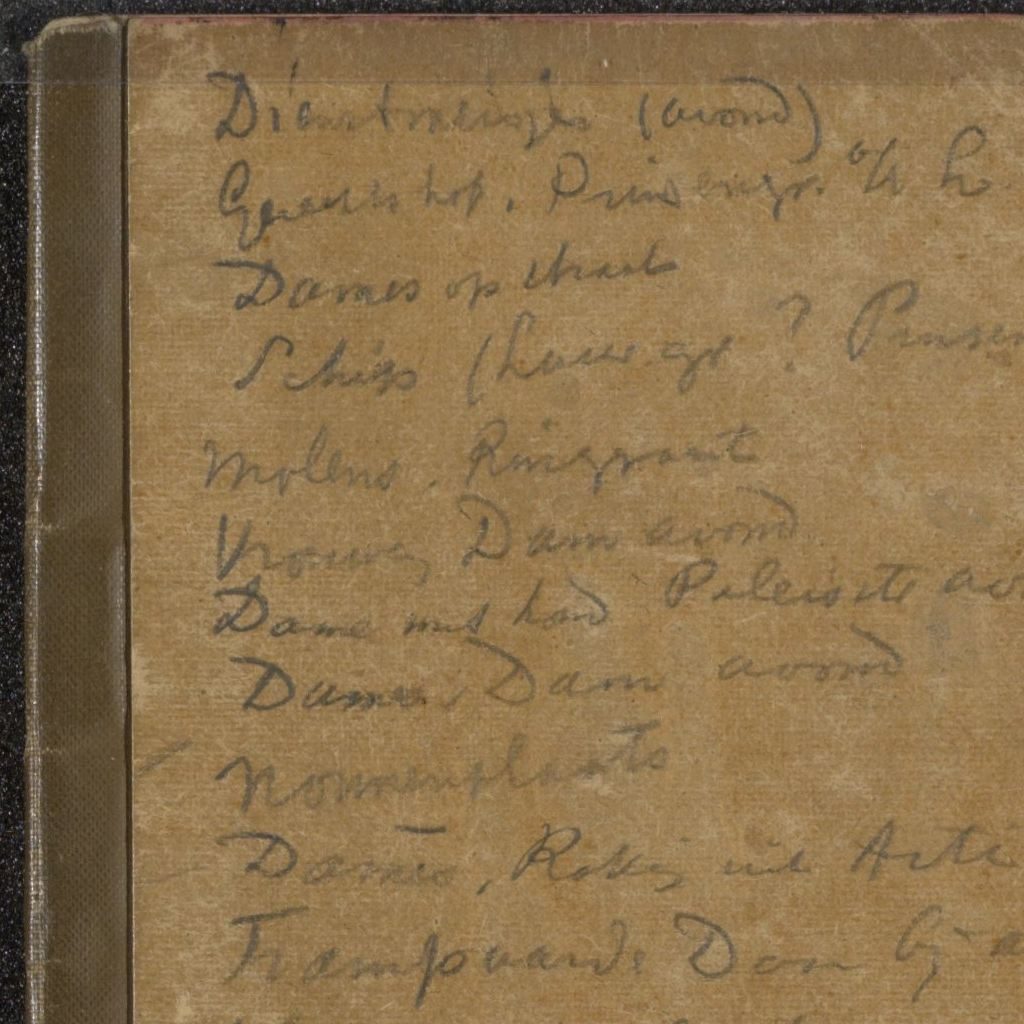 Dienstmeisjes (avond)
Geertshof. Prinsengr. o/h
Dames op straat
Schip (Lauwegr ? Prinsen
Molens. Ringvaart
Vrouwen Dam avond
Dame met hond Paleisstr avo
Dames Dam avond
Nonnenplaats
Dames, Rokin uit Arti
Trampaarde Dam bij a